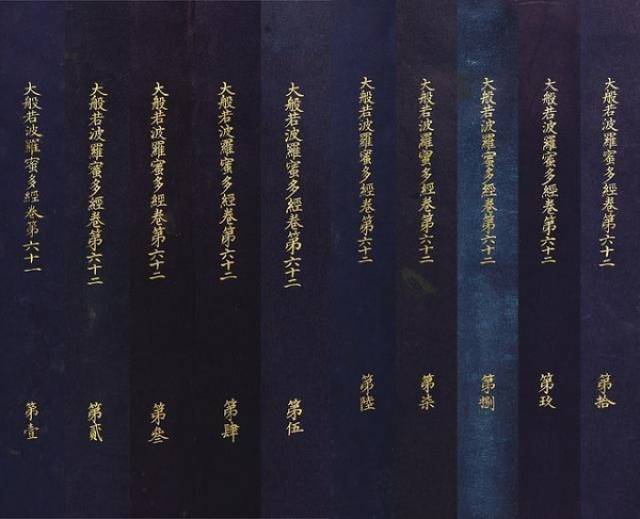 大般若波羅蜜多經卷第六十一
第壹
大般若波羅蜜多經卷第六十二
第貳
大般若波羅蜜多經卷第六十二
第叁
大般若波羅蜜多經卷第六十二
第肆
大般若波羅蜜多經卷第六十二
第伍
大般若波羅蜜多經卷第六十二
第陸
大般若波羅蜜多經卷第六十二
第柒
大般若波羅蜜多經卷第六十二
第捌
大般若波羅蜜多經卷第六十二
第玖
大般若波羅蜜多經卷第六十二
第拾